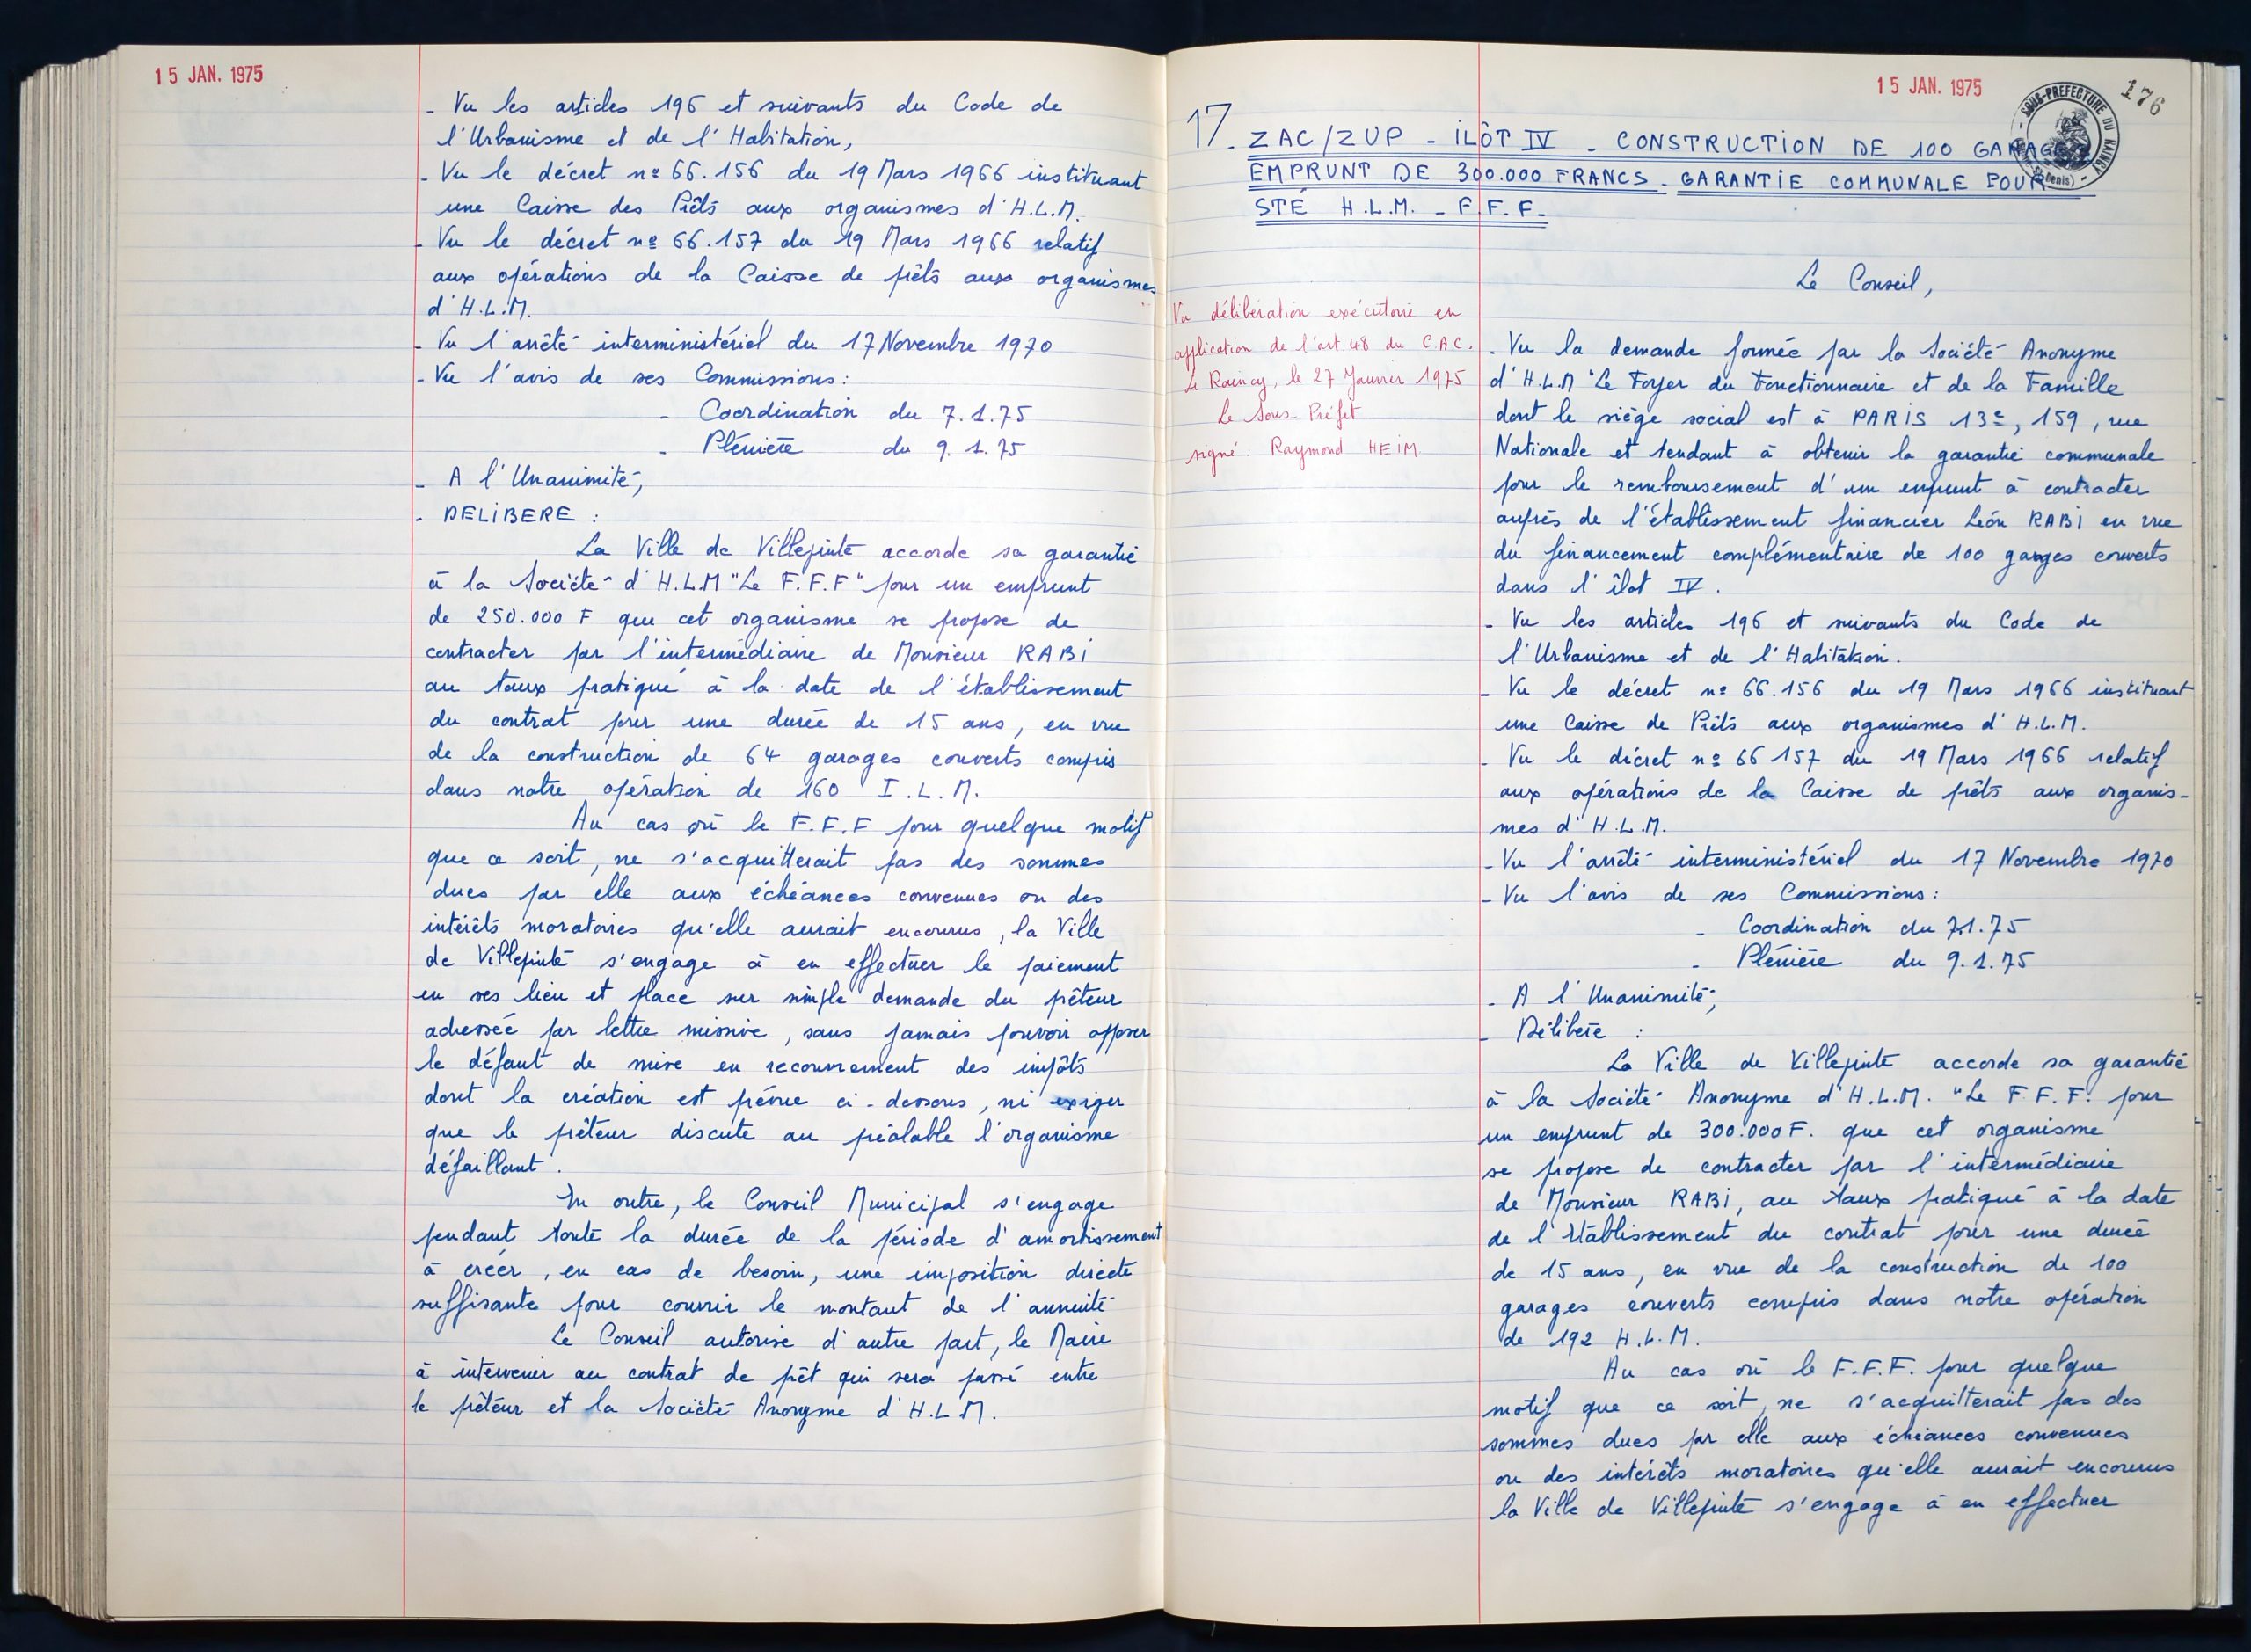 15 JAN. 1975
- Vu les articles 196 et suivants du Code de
l'Urbanisme et de l'Habitation,
- Vu le décret nº 66.156 du 19 Mars 1966 instituant
une Caisse des Prêts aux organismes d'H.L.M.
- Vu le décret nº 66.157 du 19 Mars 1966 relatif
aux opérations de la Caisse de prêts aux organismes
d'H.L.M.
- Vu l'arrêté interministériel du 17 Novembre 1970
- Vu l'avis de ses Commissions :
- Coordination du 7.1.75
- Plénière du 9.1.75
- A l'Unanimité,
- DELIBERE :
La Ville de Villepinte accorde sa garantie
à la Société d'H.L.M "Le F.F.F" pour un emprunt
de 250.000 F que cet organisme se propose de
contracter par l'intermédiaire de Monsieur RABI
au taux pratiqué à la date de l'établissement
du contrat pour une durée de 15 ans, en vue
de la construction de 64 garages couverts compris
dans notre opération de 160 I.L.M.
Au cas où le F.F.F pour quelque motif
que ce soit, ne s'acquitterait pas des sommes
dues par elle aux échéances convenues ou des
intérêts moratoires qu'elle aurait encourus, la Ville
de Villepinte s'engage à en effectuer le paiement
en ses lieu et place sur simple demande du prêteur
adressée par lettre missive, sans jamais pouvoir opposer
le défaut de mise en recouvrement des impôts
dont la création est prévue ci-dessous, ni exiger
que le prêteur discute au préalable l'organisme
défaillant.
En outre, le Conseil Municipal s'engage
pendant toute la durée de la période d'amortissement
à créer, en cas de besoin, une imposition directe
suffisante pour couvrir le montant de l'annuité
Le Conseil autorise d'autre part, le Maire
à intervenir au contrat de prêt qui sera passé entre
le prêteur et la Société Anonyme d'H.L.M.
15 JAN. 1975
176
SOUS-PREFECTURE DU RAINCY
17. ZAC/ZUP - ILÔT IV - CONSTRUCTION DE 100 GARAGES
EMPRUNT DE 300.000 FRANCS - GARANTIE COMMUNALE POUR
STÉ H.L.M. - F.F.F.
Le Conseil,
Vu délibération exécutoire en
application de l'art. 48 du C.A.C.
Le Raincy, le 27 Janvier 1975
Le Sous-Préfet
signé : Raymond HEIM
- Vu la demande formée par la Société Anonyme
d'H.L.M "Le Foyer du Fonctionnaire et de la Famille
dont le siège social est à PARIS 13e, 159, rue
Nationale et tendant à obtenir la garantie communale
pour le remboursement d'un emprunt à contracter
auprès de l'établissement financier Léon RABI en vue
du financement complémentaire de 100 garages couverts
dans l'îlot IV.
- Vu les articles 196 et suivants du Code de
l'Urbanisme et de l'Habitation.
- Vu le décret nº 66.156 du 19 Mars 1966 instituant
une Caisse de Prêts aux organismes d'H.L.M.
- Vu le décret nº 66 157 du 19 Mars 1966 relatif
aux opérations de la Caisse de prêts aux organis-
mes d'H.L.M.
- Vu l'arrêté interministériel du 17 Novembre 1970
- Vu l'avis de ses Commissions :
- Coordination du 7.1.75
- Plénière du 9.1.75
- A l'Unanimité,
- Délibère :
La Ville de Villepinte accorde sa garantie
à la Société Anonyme d'H.L.M. "Le F.F.F. pour
un emprunt de 300.000 F. que cet organisme
se propose de contracter par l'intermédiaire
de Monsieur RABI, au taux pratiqué à la date
de l'établissement du contrat pour une durée
de 15 ans, en vue de la construction de 100
garages couverts compris dans notre opération
de 192 H.L.M.
Au cas où le F.F.F. pour quelque
motif que ce soit, ne s'acquitterait pas des
sommes dues par elle aux échéances convenues
ou des intérêts moratoires qu'elle aurait encourus
la Ville de Villepinte s'engage à en effectuer